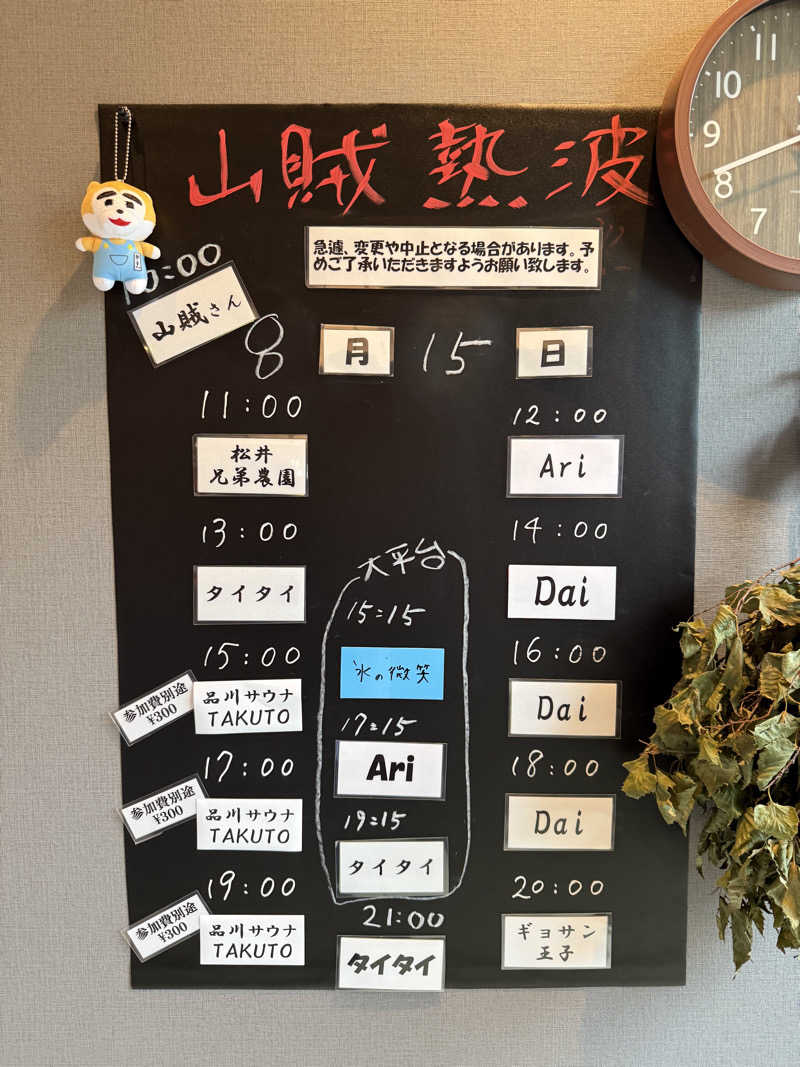 山賊熱波
急遽、変更や中止となる場合があります。予
めご了承いただきますようお願い致します。
10:00
山賊さん
8月15日
11:00
松井
兄弟農園
12:00
Ari
13:00
タイタイ
14:00
Dai
大平台
15:15
氷の微笑
15:00
参加費別途
¥300
品川サウナ
TAKUTO
16:00
Dai
17:15
Ari
17:00
参加費別途
¥300
品川サウナ
TAKUTO
18:00
Dai
19:15
タイタイ
19:00
参加費別途
¥300
品川サウナ
TAKUTO
20:00
ギョサン
王子
21:00
タイタイ
11
10
9
8
7